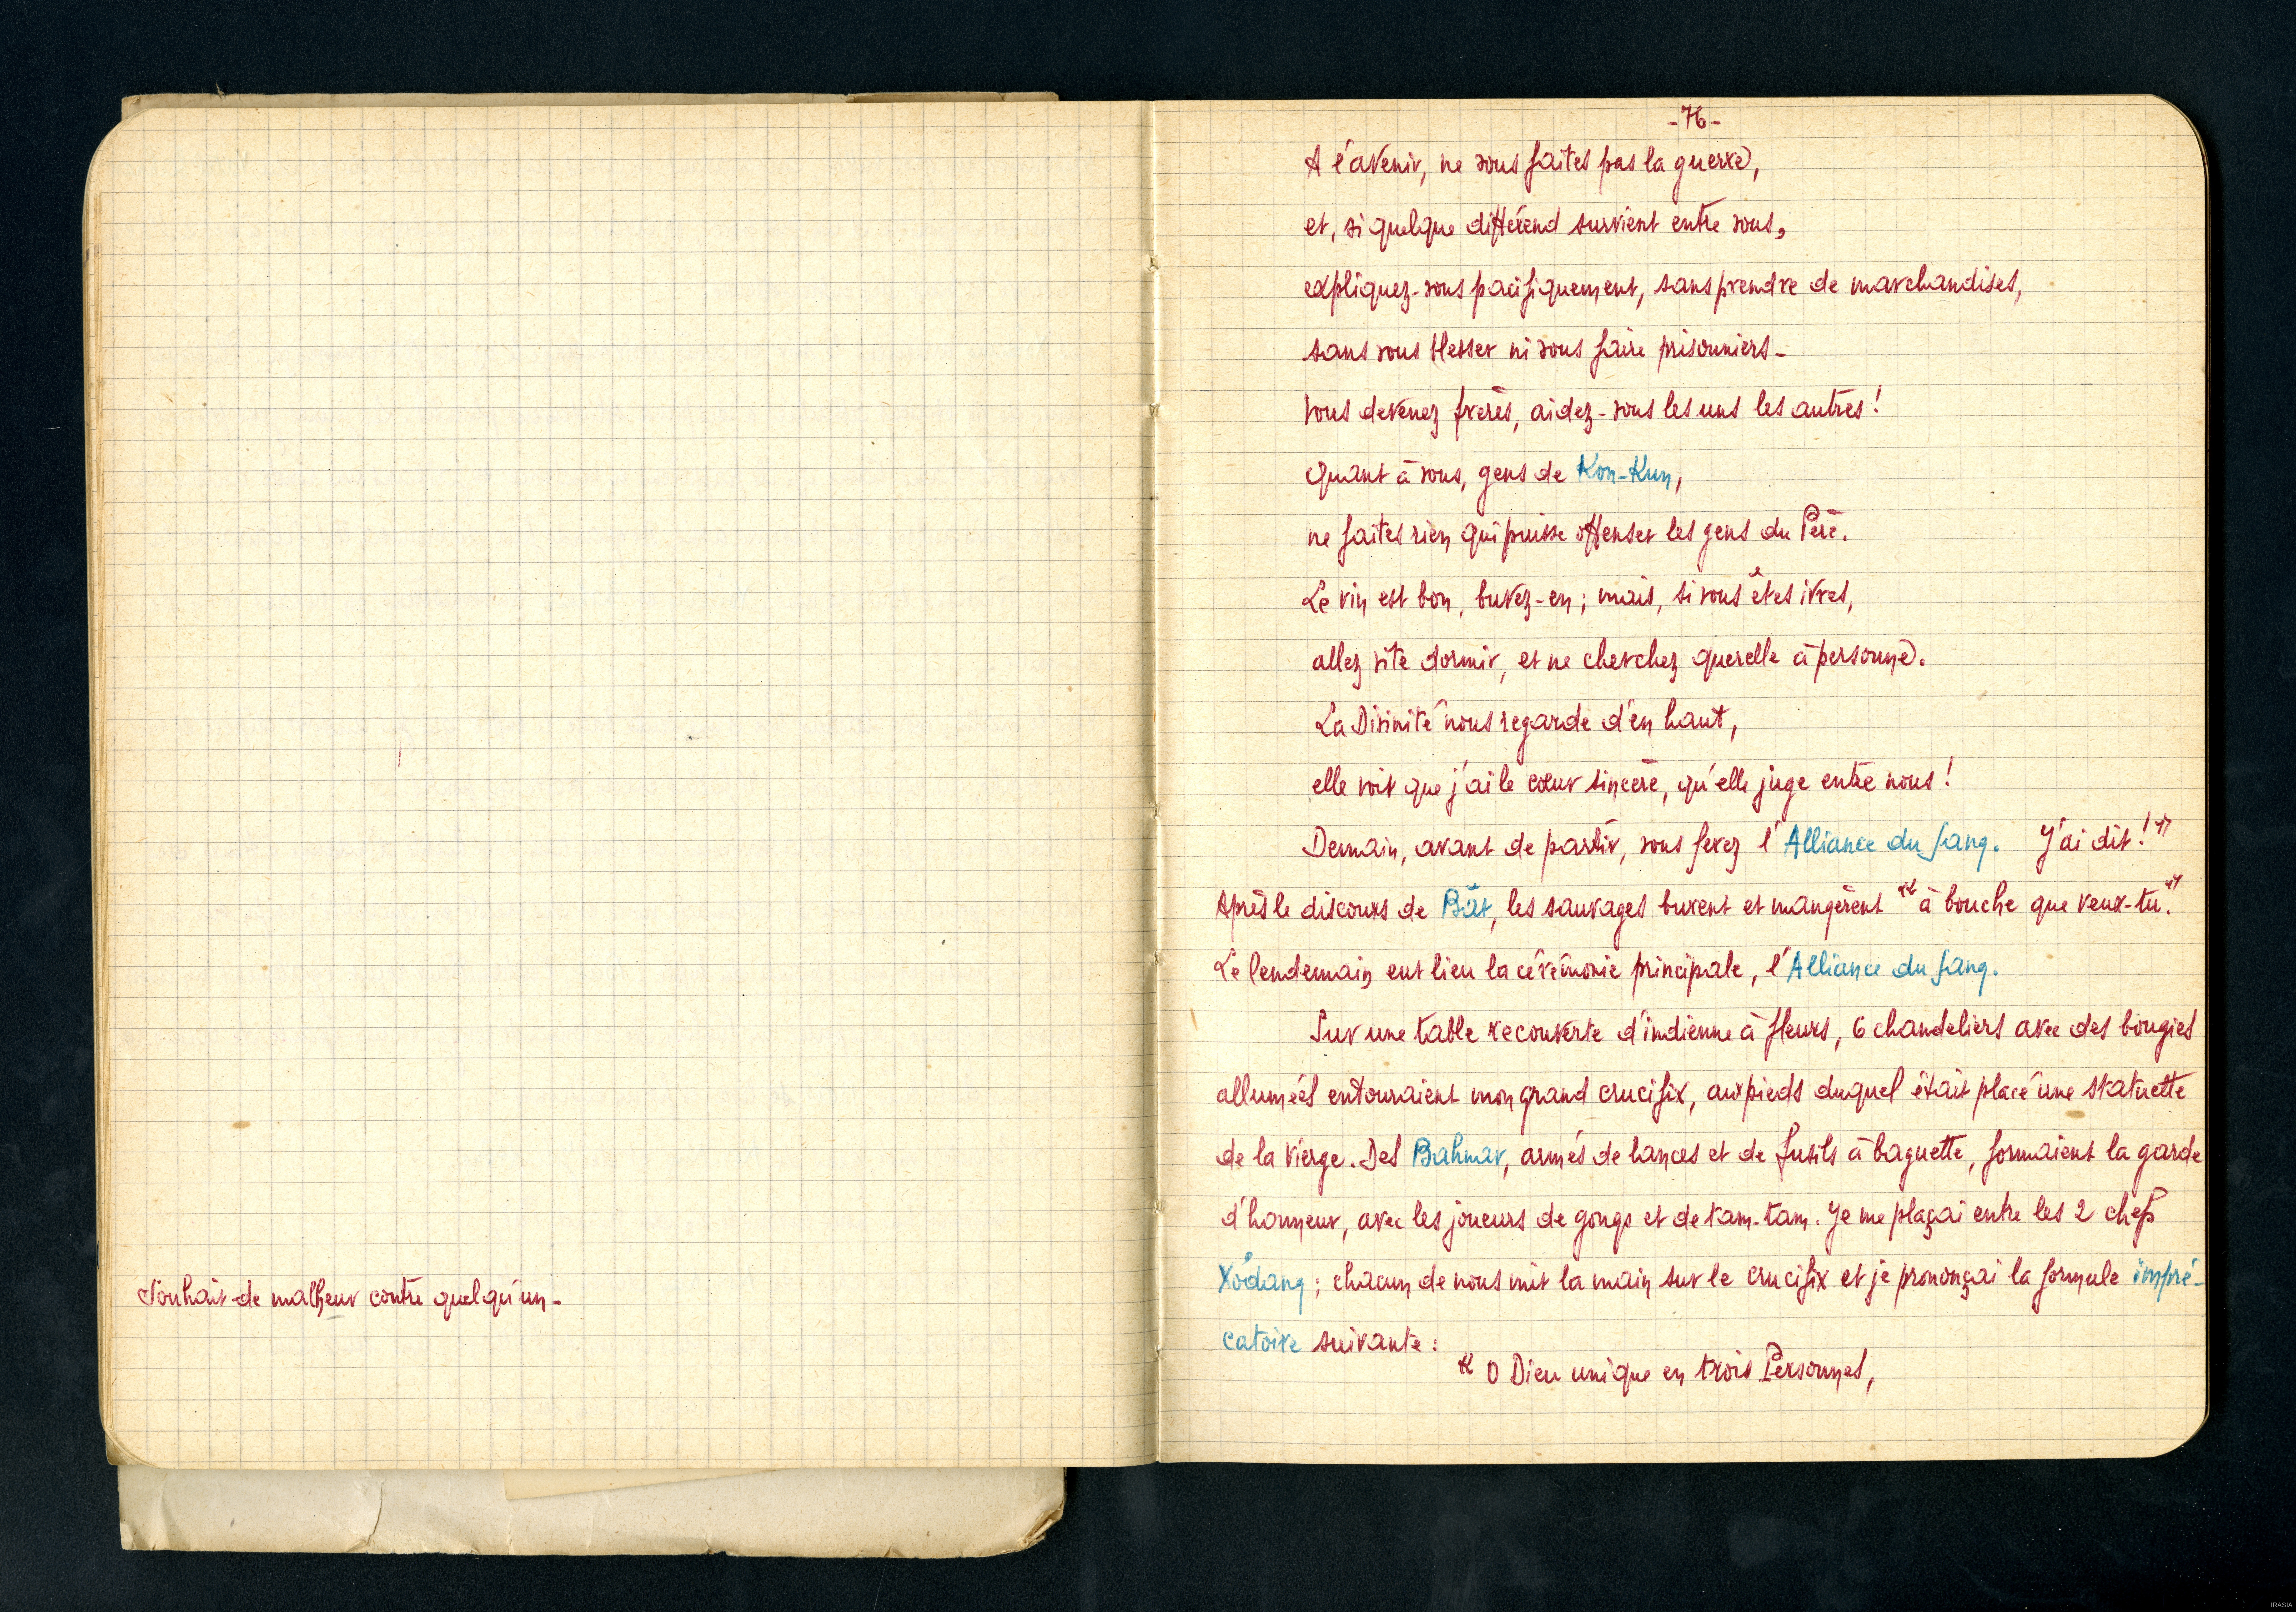 Souhait de malheur contre quelqu'un -
- 76 -
A l'avenir, ne vous faites pas la guerre,
et, si quelque différend survient entre vous,
expliquez-vous pacifiquement, sans prendre de marchandises,
sans vous blesser ni vous faire prisonniers -
Vous devenez frères, aidez-vous les uns les autres !
Quant à vous, gens de Kon-Kun,
ne faites rien qui puisse offenser les gens du Père.
Le vin est bon, buvez-en ; mais, si vous êtes ivres,
allez vite dormir, et ne cherchez querelle à personne.
La Divinité nous regarde d'en haut,
elle voit que j'ai le cœur sincère, qu'elle juge entre nous !
Demain, avant de partir, vous ferez l'Alliance du Sang. J'ai dit ! "
Après le discours de Bât, les sauvages burent et mangèrent " à bouche que veux-tu. "
Le lendemain eut lieu la cérémonie principale, l'Alliance du Sang.
Sur une table recouverte d'indienne à fleurs, 6 chandeliers avec des bougies
allumées entouraient mon grand crucifix, aux pieds duquel était placé une statuette
de la Vierge. Des Bahnar, armés de lances et de fusils à baguette, formaient la garde
d'honneur, avec les joueurs de gongs et de tam-tam. Je me plaçai entre les 2 chefs
Xơdang ; chacun de nous mit la main sur le crucifix et je prononçai la formule impré-
catoire suivante :
" O Dieu unique en trois Personnes,
IRASIA